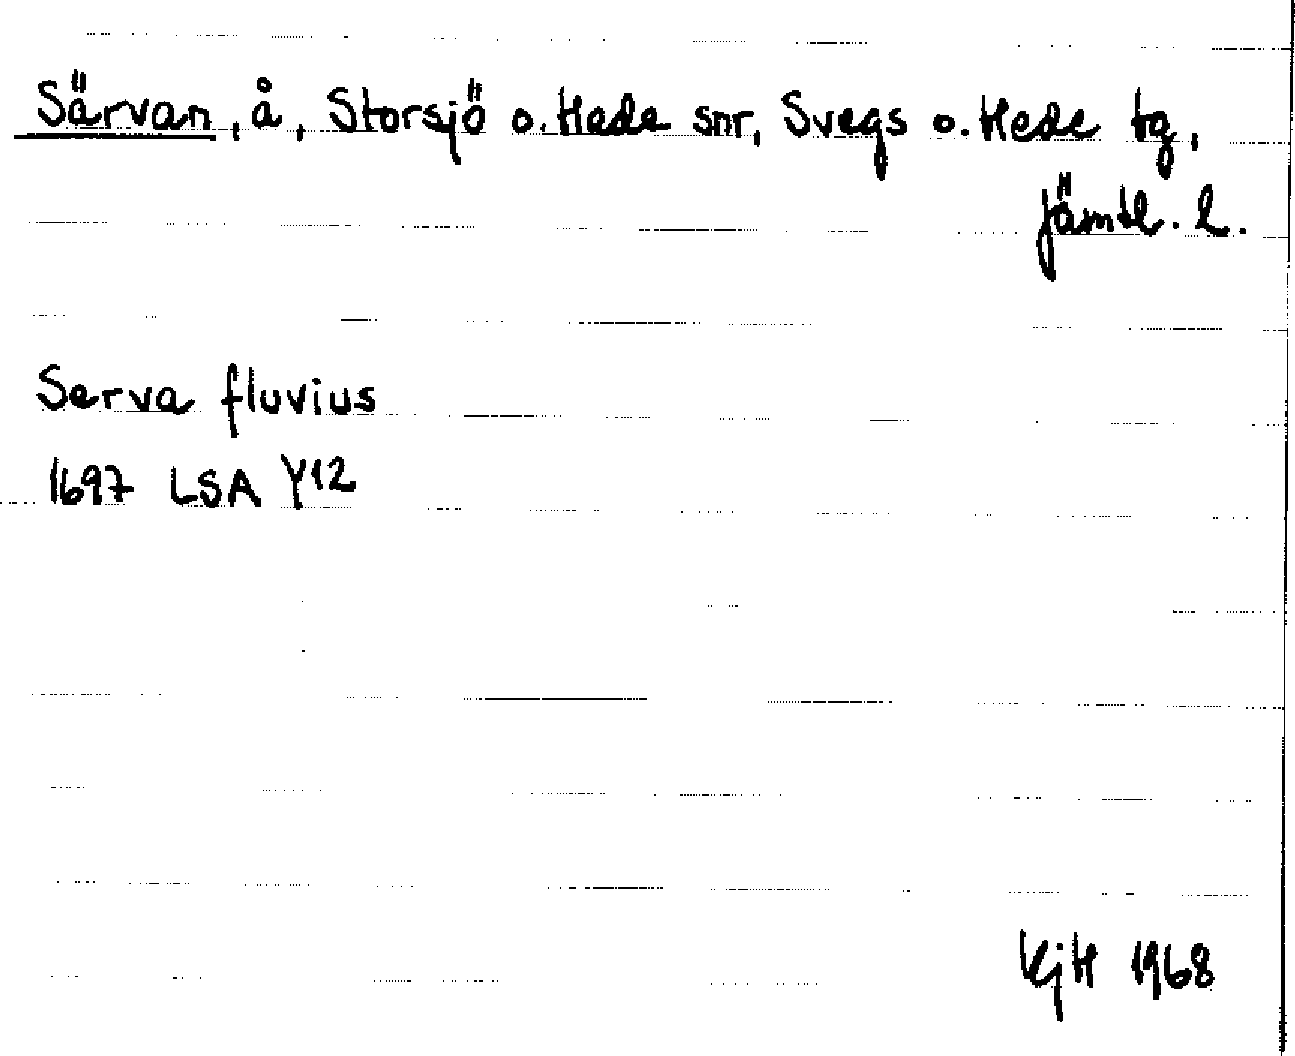 Särvan, å, Storsjö o. Hede snr, Svegs o. Hede tg,
Jämtl. l.
Serva fluvius
1697 LSA Y12
KjH 1968